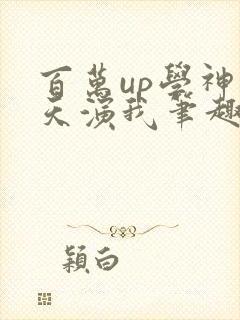 百萬up學神
天演我筆趣
穎白